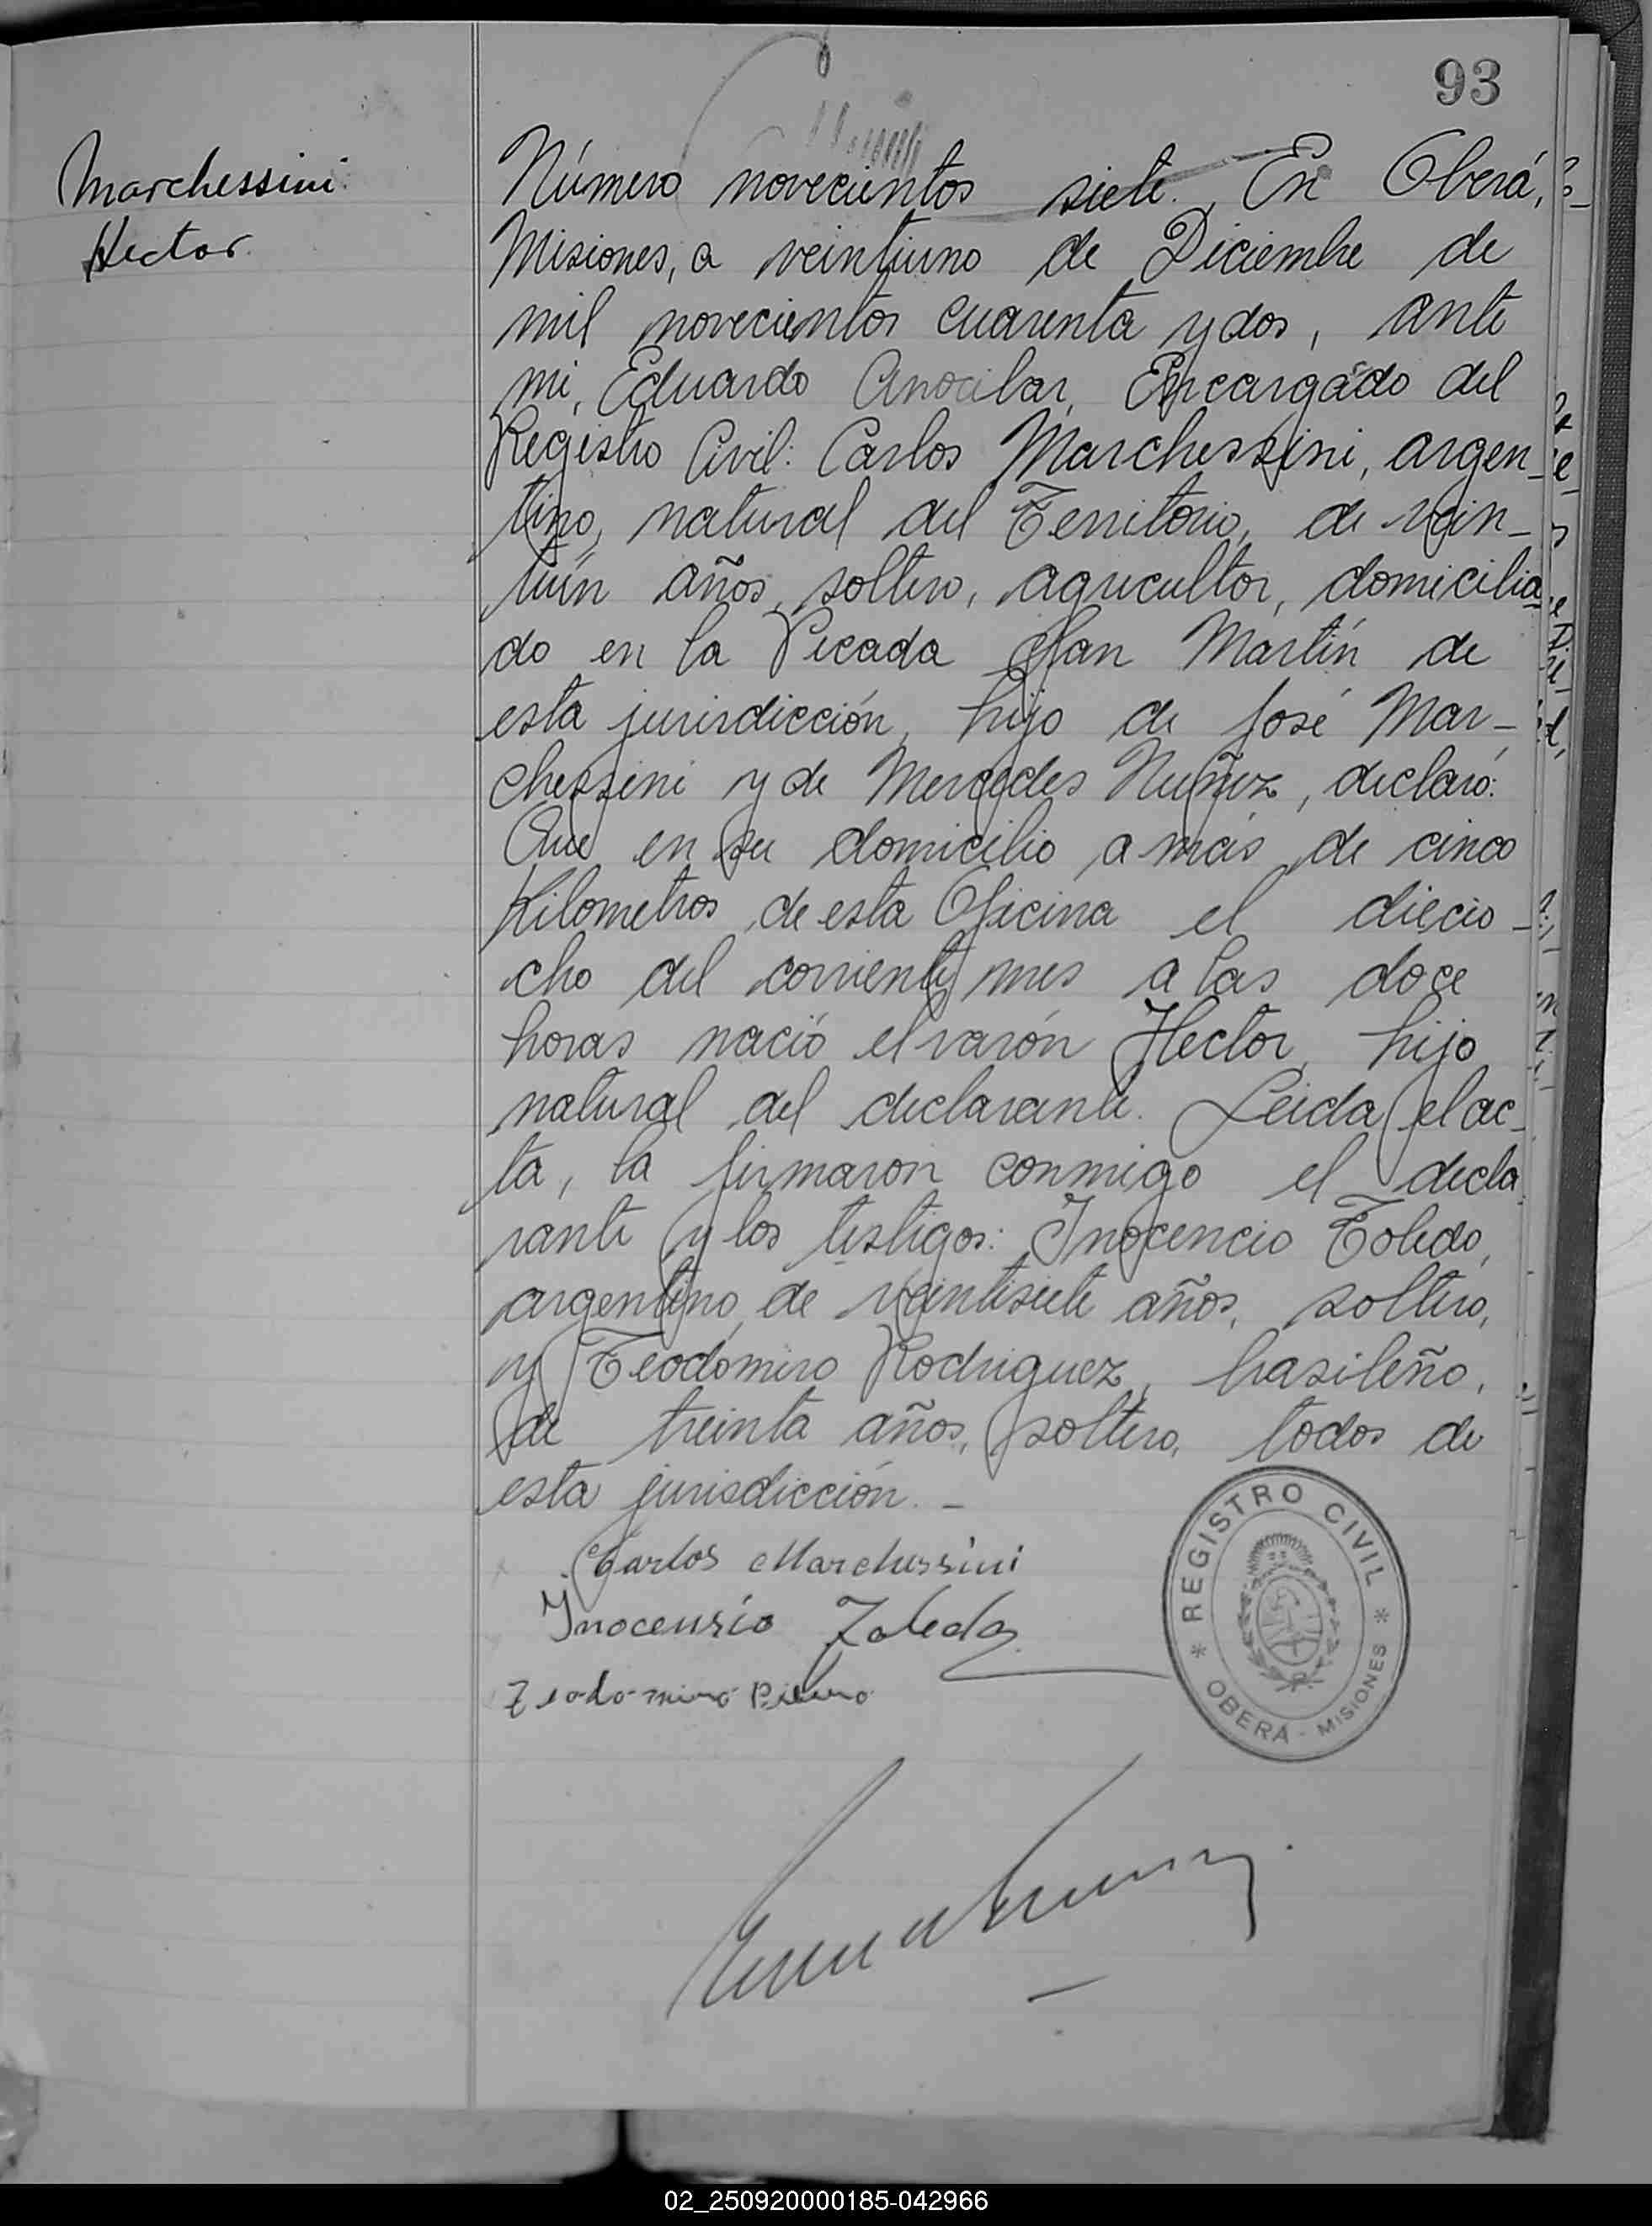 93
Marchessini
Hector
Número novecientos siete. En Oberá,
Misiones, a veintiuno de Diciembre de
mil novecientos cuarenta y dos, ante
mi, Eduardo Encargado del
Registro Civil: Carlos Marchessini, argen-
tino, natural del Territorio, de vein-
tiún años, soltero, agricultor, domicilia-
do en la Picada San Martín de
esta jurisdicción, hijo de José Mar-
chessini y de Mercedes Nuñez, declaró:
Que en su domicilio a más de cinco
Kilometros de esta Oficina el diecio-
cho del corriente mes a las doce
horas nació el varón Hector, hijo
natural del declarante. Leida el ac-
ta, la firmaron conmigo el decla
rante y los testigos: Inocencio Toledo,
argentino, de veintisiete años, soltero,
y Teodomiro Rodriguez, brasileño,
de treinta años, soltero, todos de
esta jurisdicción. -
Carlos Marchessini
Inocensio Toledo
Teodomiro
* REGISTRO CIVIL *
OBERÁ - MISIONES
02_250920000185-042966